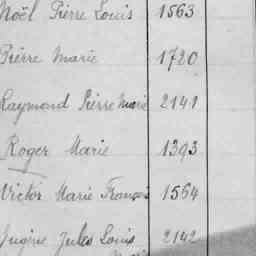 Noël Pierre Louis 1563
Pierre Marie 1720
Raymond Pierre Marie 2141
Roger Marie 1393
Victor Marie François 1564
Eugène Jules Louis 2142